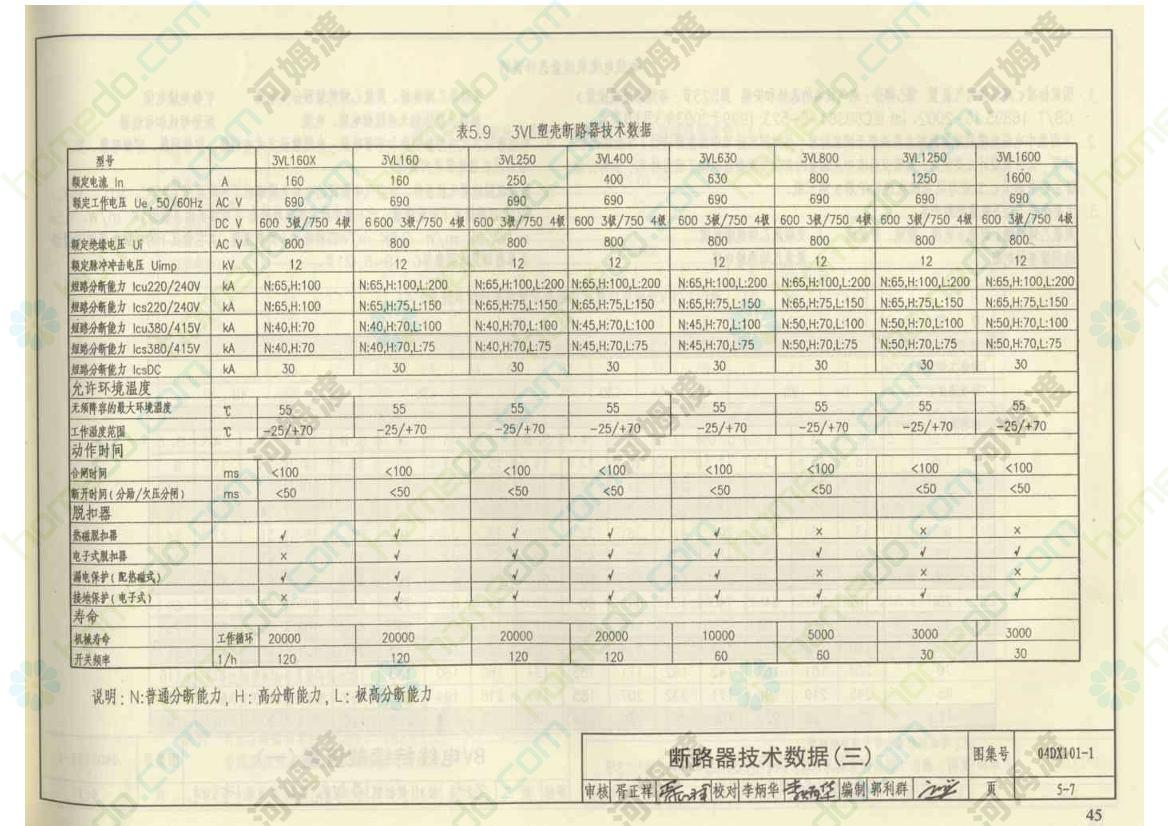 表5.9 3VL塑壳断路器技术数据
型号 3VL160X 3VL160 3VL250 3VL400 3VL630 3VL800 3VL1250 3VL1600
额定电流 In A 160 160 250 400 630 800 1250 1600
额定工作电压 Ue, 50/60Hz AC V 690 690 690 690 690 690 690 690
DC V 600 3极/750 4极 6600 3极/750 4极 600 3极/750 4极 600 3极/750 4极 600 3极/750 4极 600 3极/750 4极 600 3极/750 4极 600 3极/750 4极
额定绝缘电压 Ui AC V 800 800 800 800 800 800 800 800
额定脉冲冲击电压 Uimp kV 12 12 12 12 12 12 12 12
短路分断能力 Icu220/240V kA N:65,H:100 N:65,H:100,L:200 N:65,H:100,L:200 N:65,H:100,L:200 N:65,H:100,L:200 N:65,H:100,L:200 N:65,H:100,L:200 N:65,H:100,L:200
短路分断能力 Ics220/240V kA N:65,H:100 N:65,H:75,L:150 N:65,H:75,L:150 N:65,H:75,L:150 N:65,H:75,L:150 N:65,H:75,L:150 N:65,H:75,L:150 N:65,H:75,L:150
短路分断能力 Icu380/415V kA N:40,H:70 N:40,H:70,L:100 N:40,H:70,L:100 N:45,H:70,L:100 N:45,H:70,L:100 N:50,H:70,L:100 N:50,H:70,L:100 N:50,H:70,L:100
短路分断能力 Ics380/415V kA N:40,H:70 N:40,H:70,L:75 N:40,H:70,L:75 N:45,H:70,L:75 N:45,H:70,L:75 N:50,H:70,L:75 N:50,H:70,L:75 N:50,H:70,L:75
短路分断能力 IcsDC kA 30 30 30 30 30 30 30 30
允许环境温度
无须降容的最大环境温度 ℃ 55 55 55 55 55 55 55 55
工作温度范围 ℃ -25/+70 -25/+70 -25/+70 -25/+70 -25/+70 -25/+70 -25/+70 -25/+70
动作时间
合闸时间 ms <100 <100 <100 <100 <100 <100 <100 <100
断开时间(分励/欠压分闸) ms <50 <50 <50 <50 <50 <50 <50 <50
脱扣器
热磁脱扣器 √ √ √ √ √ × × ×
电子式脱扣器 × √ √ √ √ √ √ √
漏电保护(配热磁式) √ √ √ √ √ × × ×
接地保护(电子式) × √ √ √ √ √ √ √
寿命
机械寿命 工作循环 20000 20000 20000 20000 10000 5000 3000 3000
开关频率 1/h 120 120 120 120 60 60 30 30
说明:N:普通分断能力,H:高分断能力,L:极高分断能力
断路器技术数据(三) 图集号 04DX101-1
审核 胥正祥 校对 李炳华 李炳华 编制 郭利群 页 5-7
45
河姆渡
homedo.com